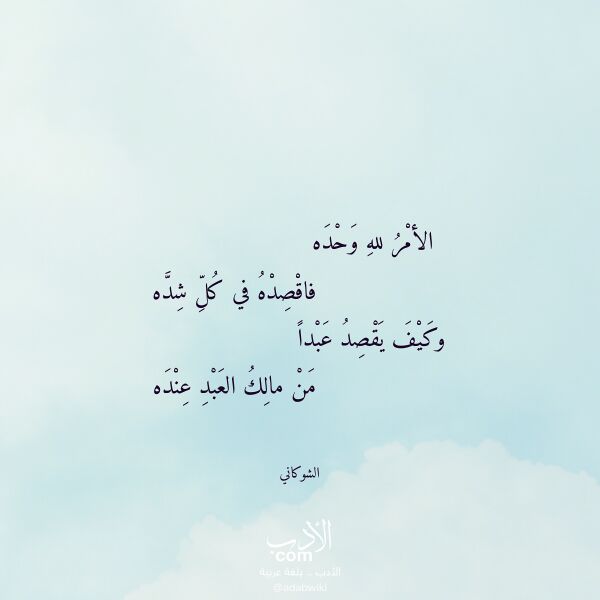 الأمْرُ للهِ وَحْدَه
فاقْصِدْهُ في كُلِّ شِدَّه
وكَيْفَ يَقْصِدُ عَبْداً
مَنْ مالِكُ العَبْدِ عِنْدَه
الشوكاني
الأدب
com
الأدب .. بلغة عربية
@adabwiki